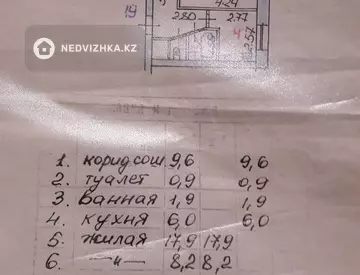 19
4.24
2.80 2.77
4
2.57
NEDVIZHKA.KZ
1. коридсош 9,6 9,6
2. туалет 0,9 0,9
3. Ванная 1,9 1,9
4. кухня 6,0 6,0
5. жилая 17,9 17,9
6. —„— 8,2 8,2